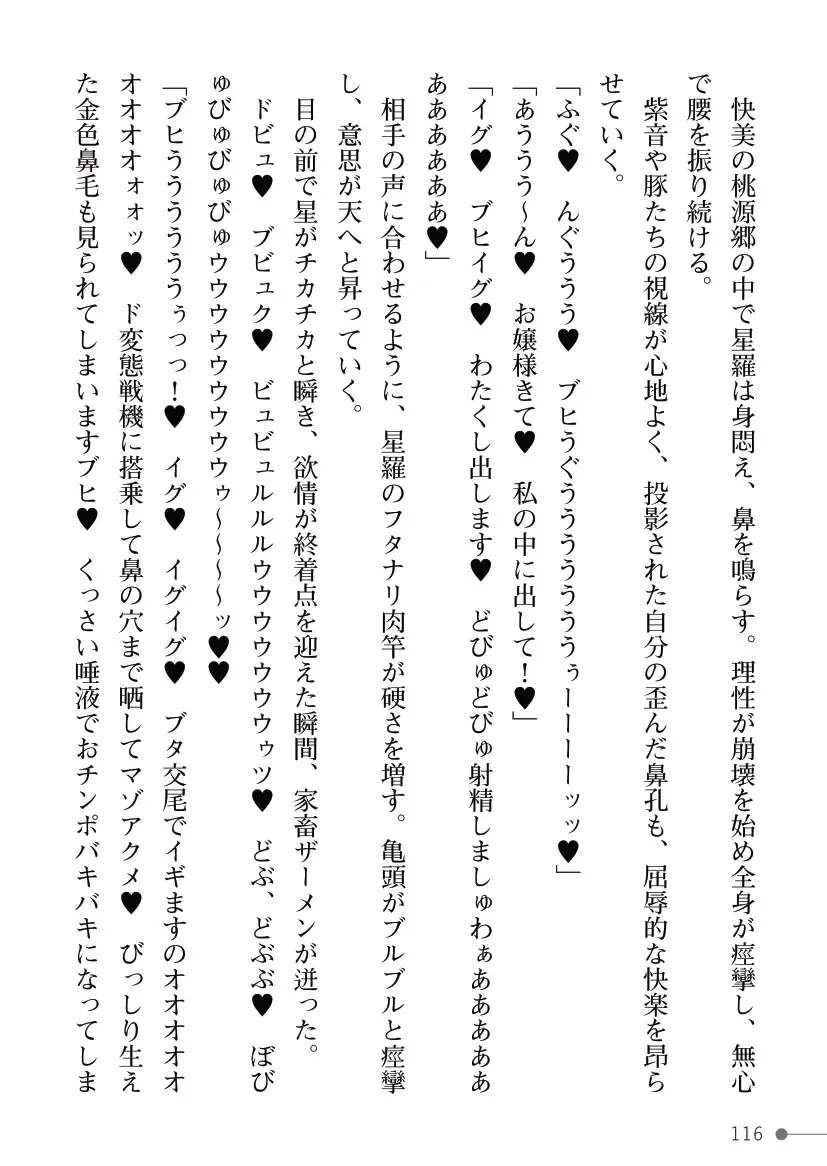 快美の桃源郷の中で星羅は身悶え、鼻を鳴らす。理性が崩壊を始め全身が痙攣し、無心
で腰を振り続ける。
紫音や豚たちの視線が心地よく、投影された自分の歪んだ鼻孔も、屈辱的な快楽を昂ら
せていく。
「ふぐ♥　んぐううう♥　ブヒうぐうううううううぅーーーーッッ♥」
「あううう～ん♥　お嬢様きて♥　私の中に出して！♥」
「イグ♥　ブヒイグ♥　わたくし出します♥　どびゅどびゅ射精しましゅわぁあああああ
ああああああ♥」
相手の声に合わせるように、星羅のフタナリ肉竿が硬さを増す。亀頭がブルブルと痙攣
し、意思が天へと昇っていく。
目の前で星がチカチカと瞬き、欲情が終着点を迎えた瞬間、家畜ザーメンが迸った。
ドビュ♥　ブビュク♥　ビュビュルルルウウウウウウウゥツ♥　どぶ、どぶぶ♥　ぼび
ゅびゅびゅびゅウウウウウウウウウゥ～～～～ッ♥♥
「ブヒううううううぅっっ！♥　イグ♥　イグイグ♥　ブタ交尾でイギますのオオオオオ
オオオオォォッ♥　ド変態戦機に搭乗して鼻の穴まで晒してマゾアクメ♥　びっしり生え
た金色鼻毛も見られてしまいますブヒ♥　くっさい唾液でおチンポバキバキになってしま
116